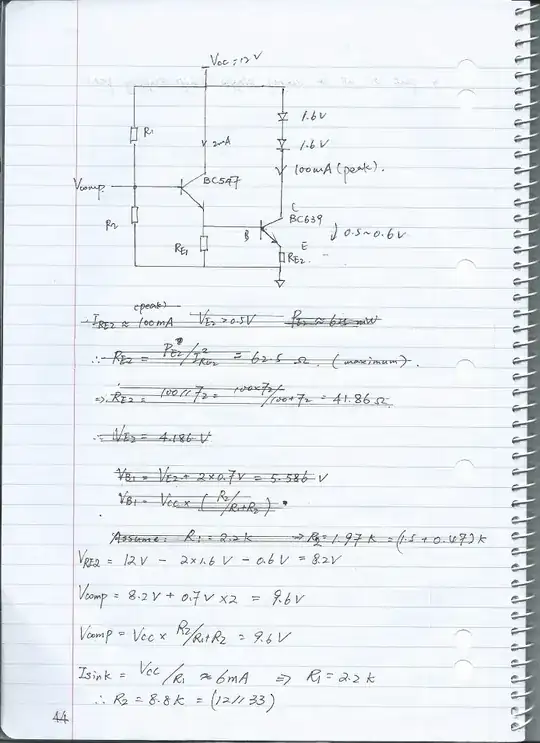 Vcc=12V
1.6V
R1
2mA
1.6V
100mA (peak).
Vcomp
BC547
C
BC639
R2
B
↓ 0.5~0.6V
RE1
E
RE2
(peak)
∴ IRE2 ≈ 100mA VE2 > 0.5V PE2 ≈ 625 mW
∴ RE2 = PE2/I²RE2 = 62.5 Ω. (maximum).
⇒ RE2 = 100//72 = 100×72/100+72 = 41.86 Ω
∴ VE2 = 4.186 V
VB1 = VE2 + 2×0.7V = 5.586 V
VB1 = Vcc × (R2/R1+R2)
Assume: R1 = 2.2k ⇒ R2 = 1.97k = (1.5 + 0.47)k
VRE2 = 12V - 2×1.6V - 0.6V = 8.2V
Vcomp = 8.2V + 0.7V ×2 = 9.6V
Vcomp = Vcc × R2/R1+R2 = 9.6V
Isink = Vcc/R1 ≈ 6mA ⇒ R1 = 2.2k
∴ R2 = 8.8k = (12//33)
44